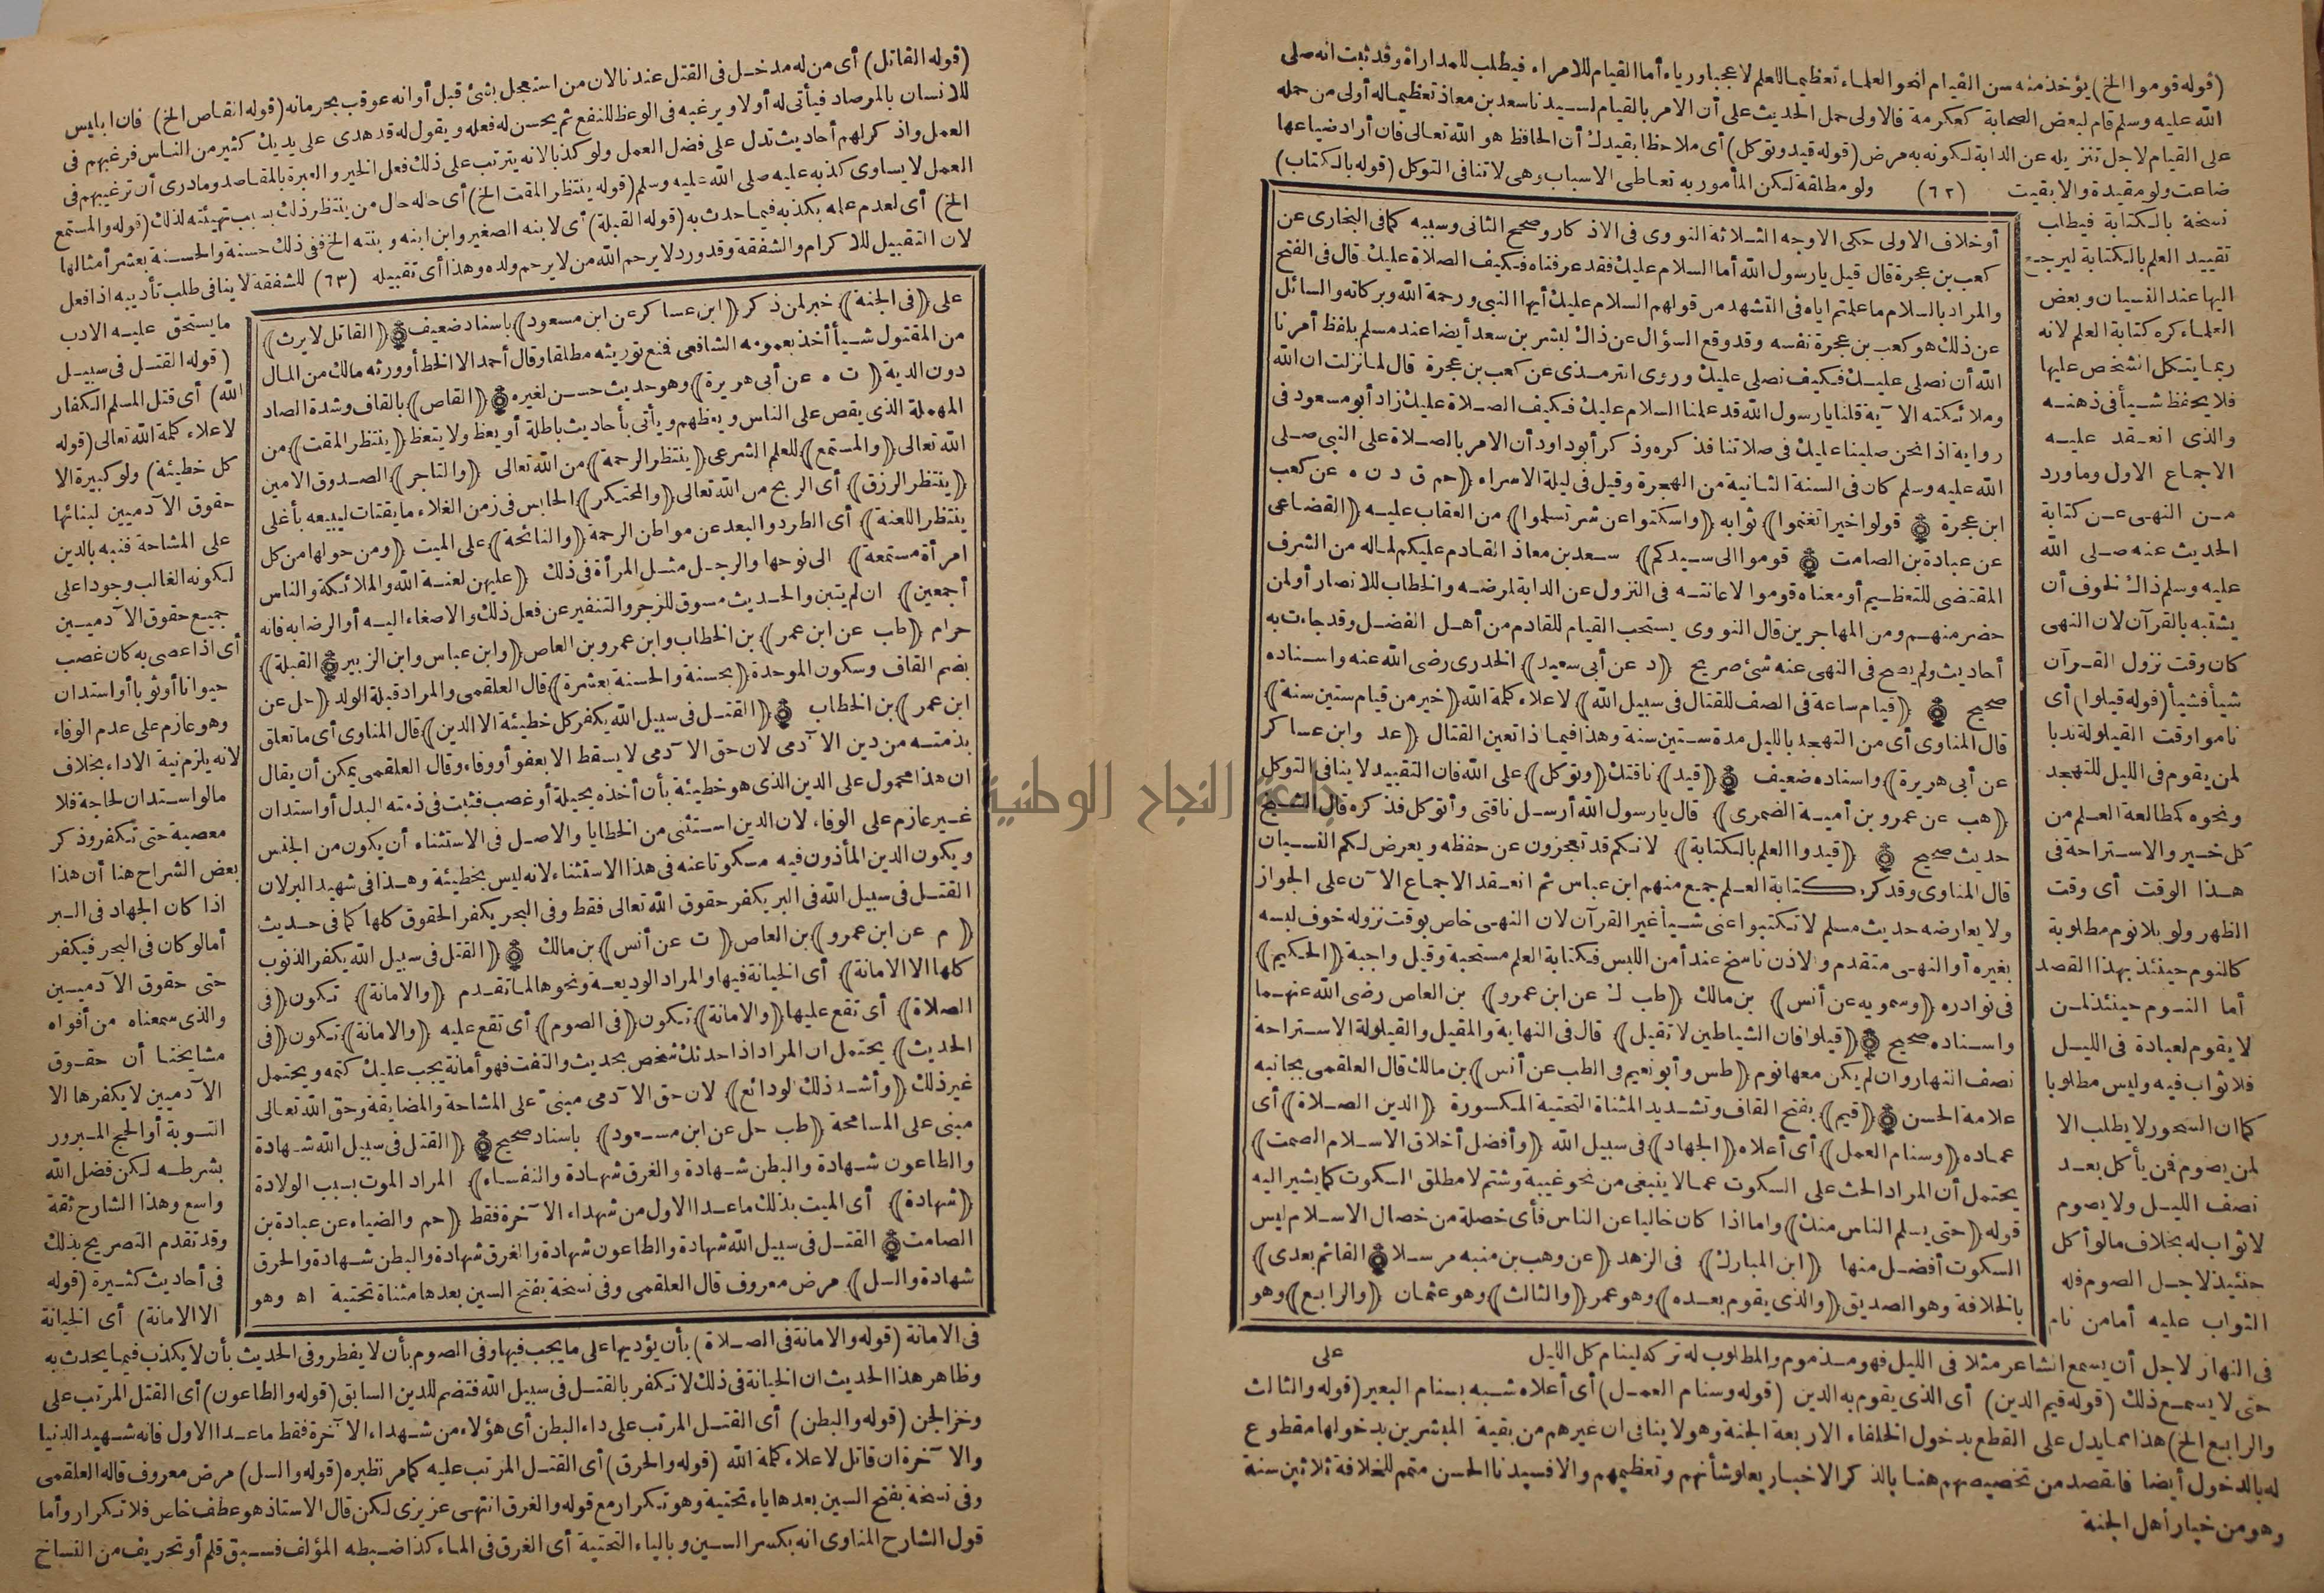 (قوله قوموا الخ) يؤخذ منه سن القيام لنحو العلماء تعظيما للعلم لا عجبا ورياء أما القيام للامراء فيطلب للمداراة وقد ثبت انه صلى
الله عليه وسلم قام لبعض الصحابة كعكرمة فالاولى حمل الحديث على أن الامر بالقيام لسيدنا سعد بن معاذ تعظيما له أولى من حمله
على القيام لاجل تنزيله عن الدابة لكونه به مرض (قوله قيد وتوكل) أى ملاحظا بقيدك أن الحافظ هو الله تعالى فان أراد ضياعها
ضاعت ولو مقيدة والا بقيت (٦٢) ولو مطلقة لكن المأمور به تعاطى الاسباب وهى لا تنافى التوكل (قوله بالكتاب)
نسخة بالكتابة فيطلب
تقييد العلم بالكتابة ليرجع
اليها عند النسيان وبعض
العلماء كره كتابة العلم لانه
ربما يتكل الشخص عليها
فلا يحفظ شيأ فى ذهنه
والذى انعقد عليه
الاجماع الاول وما ورد
من النهى عن كتابة
الحديث عنه صلى الله
عليه وسلم ذاك لخوف أن
يشتبه بالقرآن لان النهى
كان وقت نزول القرآن
شيأ فشيأ (قوله قيلوا) أى
ناموا وقت القيلولة ندبا
لمن يقوم فى الليل للتهجد
ونحوه كمطالعة العلم من
كل خير والاستراحة فى
هذا الوقت أى وقت
الظهر ولو بلا نوم مطلوبة
كالنوم حينئذ بهذا القصد
أما النوم حينئذ لمن
لا يقوم لعبادة فى الليل
فلا ثواب فيه وليس مطلوبا
كما ان السحور لا يطلب الا
لمن يصوم فمن يأكل بعد
نصف الليل ولا يصوم
لا ثواب له بخلاف ما لو أكل
حينئذ لاجل الصوم فله
الثواب عليه أما من نام
أو خلاف الاولى حكى الاوجه الثلاثة النووى فى الاذكار وصحح الثانى وسببه كما فى البخارى عن
كعب بن عجرة قال قيل يا رسول الله أما السلام عليك فقد عرفناه فكيف الصلاة عليك قال فى الفتح
والمراد بالسلام ما علمتم اياه فى التشهد من قولهم السلام عليك أيها النبى ورحمة الله وبركاته والسائل
عن ذلك هو كعب بن عجرة نفسه وقد وقع السؤال عن ذلك لبشر بن سعد أيضا عند مسلم بلفظ أمرنا
الله أن نصلى عليك فكيف نصلى عليك وروى الترمذى عن كعب بن عجرة قال لما نزلت ان الله
وملائكته الآية قلنا يا رسول الله قد علمنا السلام عليك فكيف الصلاة عليك زاد أبو مسعود فى
رواية اذا نحن صلينا عليك فى صلاتنا فذكره وذكر أبو داود أن الامر بالصلاة على النبى صلى
الله عليه وسلم كان فى السنة الثانية من الهجرة وقيل فى ليلة الاسراء (حم ق د ن ه عن كعب
ابن عجرة (قولوا خيرا تغنموا) ثوابه (واسكتوا عن شر تسلموا) من العقاب عليه (القضاعى
عن عبادة بن الصامت (قوموا الى سيدكم) سعد بن معاذ القادم عليكم لما له من الشرف
المقتضى للتعظيم أو معناه قوموا لاعانته فى النزول عن الدابة لمرضه والخطاب للانصار أو لمن
حضر منهم ومن المهاجرين قال النووى يستحب القيام للقادم من أهل الفضل وقد جاءت به
أحاديث ولم يصح فى النهى عنه شئ صريح (د عن أبى سعيد) الخدرى رضى الله عنه واسناده
صحيح (قيام ساعة فى الصف للقتال فى سبيل الله) لاعلاء كلمة الله (خير من قيام ستين سنة)
قال المناوى أى من التهجد بالليل مدة ستين سنة وهذا فيما اذا تعين القتال (عد وابن عساكر
عن أبى هريرة) واسناده ضعيف (قيد) ناقتك (وتوكل) على الله فان التقييد لا ينافى التوكل
(هب عن عمرو بن أمية الضمرى) قال يا رسول الله أرسل ناقتى وأتوكل فذكره قال الشيخ
حديث صحيح (قيدوا العلم بالكتابة) لانكم قد تعجزون عن حفظه ويعرض لكم النسيان
قال المناوى وقد كره كتابة العلم جمع منهم ابن عباس ثم انعقد الاجماع الآن على الجواز
ولا يعارضه حديث مسلم لا تكتبوا عنى شيأ غير القرآن لان النهى خاص بوقت نزوله خوف لبسه
بغيره أو النهى متقدم والاذن ناسخ عند أمن اللبس فكتابة العلم مستحبة وقيل واجبة (الحكيم)
فى نوادره (وسمويه عن أنس) بن مالك (طب ك عن ابن عمرو) بن العاص رضى الله عنهما
واسناده صحيح (قيلوا فان الشياطين لا تقيل) قال فى النهاية والمقيل والقيلولة الاستراحة
نصف النهار وان لم يكن معها نوم (طس وأبو نعيم فى الطب عن أنس) بن مالك قال العلقمى بجانبه
علامة الحسن (قيم) بفتح القاف وتشديد المثناة التحتية المكسورة (الدين الصلاة) أى
عماده (وسنام العمل) أى أعلاه (الجهاد) فى سبيل الله (وأفضل أخلاق الاسلام الصمت)
يحتمل أن المراد الحث على السكوت عما لا ينبغى من نحو غيبة وشتم لا مطلق السكوت كما يشير اليه
قوله (حتى يسلم الناس منك) واما اذا كان خاليا عن الناس فأى خصلة من خصال الاسلام ليس
السكوت أفضل منها (ابن المبارك) فى الزهد (عن وهب بن منبه مرسلا (القائم بعدى)
بالخلافة وهو الصديق (والذى يقوم بعده) وهو عمر (والثالث) وهو عثمان (والرابع) وهو
على
فى النهار لاجل أن يسمع الشاعر مثلا فى الليل فهو مذموم والمطلوب له تركه لينام كل الليل
حتى لا يسمع ذلك (قوله قيم الدين) أى الذى يقوم به الدين (قوله وسنام العمل) أى أعلاه شبه بسنام البعير (قوله والثالث
والرابع الخ) هذا مما يدل على القطع بدخول الخلفاء الاربعة الجنة وهو لا ينافى ان غيرهم من بقية المبشرين بدخولها مقطوع
له بالدخول أيضا فالقصد من تخصيصهم هنا بالذكر الاخبار بعلو شأنهم وتعظيمهم والا فسيدنا الحسن متمم للخلافة ثلاثين سنة
وهو من خيار أهل الجنة
(قوله القاتل) أى من له مدخل فى القتل عندنا لان من استعجل بشئ قبل أوانه عوقب بحرمانه (قوله القاص الخ) فان ابليس
للانسان بالمرصاد فيأتى له أولا ويرغبه فى الوعظ للنفع ثم يحسن له فعله ويقول له قد هدى على يديك كثير من الناس فرغبهم فى
العمل واذكر لهم أحاديث تدل على فضل العمل ولو كذبا لانه يترتب على ذلك فعل الخير والعبرة بالمقاصد وما درى أن ترغيبهم فى
العمل لا يساوى كذبه عليه صلى الله عليه وسلم (قوله ينتظر المقت الخ) أى حاله حال من ينتظر ذلك بسبب تهيئته لذلك (قوله والمستمع
الخ) أى لعدم علمه بكذبه فيما حدث به (قوله القبلة) أى لابنه الصغير وابن ابنه وبنته الخ ففى ذلك حسنة والحسنة بعشر أمثالها
لان التقبيل للاكرام والشفقة وقد ورد لا يرحم الله من لا يرحم ولده وهذا أى تقبيله (٦٣) للشفقة لا ينافى طلب تأديبه اذا فعل
ما يستحق عليه الادب
(قوله القتل فى سبيل
الله) أى قتل المسلم الكفار
لاعلاء كلمة الله تعالى (قوله
كل خطيئة) ولو كبيرة الا
حقوق الآدميين لبنائها
على المشاحة فنبه بالدين
لكونه الغالب وجودا على
جميع حقوق الآدميين
أى اذا عصى به كان غصب
حيوانا أو ثوبا أو استدان
وهو عازم على عدم الوفاء
لانه يلزم نية الاداء بخلاف
ما لو استدان لحاجة فلا
معصية حتى تكفر وذكر
بعض الشراح هنا أن هذا
اذا كان الجهاد فى البر
أما لو كان فى البحر فيكفر
حتى حقوق الآدميين
والذى سمعناه من أفواه
مشايخنا أن حقوق
الآدميين لا يكفرها الا
التوبة أو الحج المبرور
بشرطه لكن فضل الله
واسع وهذا الشارح ثقة
وقد تقدم التصريح بذلك
فى أحاديث كثيرة (قوله
الا الامانة) أى الخيانة
على (فى الجنة) خبر لمن ذكر (ابن عساكر عن ابن مسعود) باسناد ضعيف (القاتل لا يرث)
من المقتول شيأ أخذ بعمومه الشافعى فمنع توريثه مطلقا وقال أحمد الا الخطأ وورثه مالك من المال
دون الدية (ت ه عن أبى هريرة) وهو حديث حسن لغيره (القاص) بالقاف وشدة الصاد
المهملة الذى يقص على الناس ويعظهم ويأتى بأحاديث باطلة أو يعظ ولا يتعظ (ينتظر المقت) من
الله تعالى (والمستمع) للعلم الشرعى (ينتظر الرحمة) من الله تعالى (والتاجر) الصدوق الامين
(ينتظر الرزق) أى الربح من الله تعالى (والمحتكر) الحابس فى زمن الغلاء ما يقتات ليبيعه بأغلى
ينتظر اللعنة) أى الطرد والبعد عن مواطن الرحمة (والنائحة) على الميت (ومن حولها من كل
امرأة مستمعة) الى نوحها والرجل مثل المرأة فى ذلك (عليهن لعنة الله والملائكة والناس
أجمعين) ان لم يتبن والحديث مسوق للزجر والتنفير عن فعل ذلك والاصغاء اليه أو الرضا به فانه
حرام (طب عن ابن عمر) بن الخطاب وابن عمرو بن العاص (وابن عباس وابن الزبير (القبلة)
بضم القاف وسكون الموحدة (بحسنة والحسنة بعشرة) قال العلقمى والمراد قبلة الولد (حل عن
ابن عمر) بن الخطاب (القتل فى سبيل الله يكفر كل خطيئة الا الدين) قال المناوى أى ما تعلق
بذمته من دين الآدمى لان حق الآدمى لا يسقط الا بعفو أو وفاء وقال العلقمى يمكن أن يقال
ان هذا محمول على الدين الذى هو خطيئة بأن أخذه بحيلة أو غصب فثبت فى ذمته البدل أو استدان
غير عازم على الوفاء لان الدين استثنى من الخطايا والاصل فى الاستثناء أن يكون من الجنس
ويكون الدين المأذون فيه مسكوتا عنه فى هذا الاستثناء لانه ليس بخطيئة وهذا فى شهيد البر لان
القتل فى سبيل الله فى البر يكفر حقوق الله تعالى فقط وفى البحر يكفر الحقوق كلها كما فى حديث
(م عن ابن عمرو) بن العاص (ت عن أنس) بن مالك (القتل فى سبيل الله يكفر الذنوب
كلها الا الامانة) أى الخيانة فيها والمراد الوديعة ونحوها لما تقدم (والامانة) تكون (فى
الصلاة) أى تقع عليها (والامانة) تكون (فى الصوم) أى تقع عليه (والامانة) تكون (فى
الحديث) يحتمل ان المراد اذا حدثك شخص بحديث والتفت فهو أمانة يجب عليك كتمه ويحتمل
غير ذلك (وأشد ذلك الودائع) لان حق الآدمى مبنى على المشاحة والمضايقة وحق الله تعالى
مبنى على المسامحة (طب حل عن ابن مسعود) باسناد صحيح (القتل فى سبيل الله شهادة
والطاعون شهادة والبطن شهادة والغرق شهادة والنفساء) المراد الموت بسبب الولادة
(شهادة) أى الميت بذلك ما عدا الاول من شهداء الآخرة فقط (حم والضياء عن عبادة بن
الصامت (القتل فى سبيل الله شهادة والطاعون شهادة والغرق شهادة والبطن شهادة والحرق
شهادة والسل) مرض معروف قال العلقمى وفى نسخة بفتح السين بعدها مثناة تحتية اه وهو
فى الامانة (قوله والامانة فى الصلاة) بأن يؤديها على ما يجب فيها وفى الصوم بأن لا يفطر وفى الحديث بأن لا يكذب فيما يحدث به
وظاهر هذا الحديث ان الخيانة فى ذلك لا تكفر بالقتل فى سبيل الله فتضم للدين السابق (قوله والطاعون) أى القتل المرتب على
وخز الجن (قوله والبطن) أى القتل المرتب على داء البطن أى هؤلاء من شهداء الآخرة فقط ما عدا الاول فانه شهيد الدنيا
والآخرة ان قاتل لاعلاء كلمة الله (قوله والحرق) أى القتل المرتب عليه كما مر نظيره (قوله والسل) مرض معروف قاله العلقمى
وفى نسخة بفتح السين بعدها ياء تحتية وهو تكرار مع قوله والغرق انتهى عزيزى لكن قال الاستاذ هو عطف خاص فلا تكرار وأما
قول الشارح المناوى انه بكسر السين وبالياء التحتية أى الغرق فى الماء كذا ضبطه المؤلف فسبق قلم أو تحريف من النساخ
جامعة النجاح الوطنية